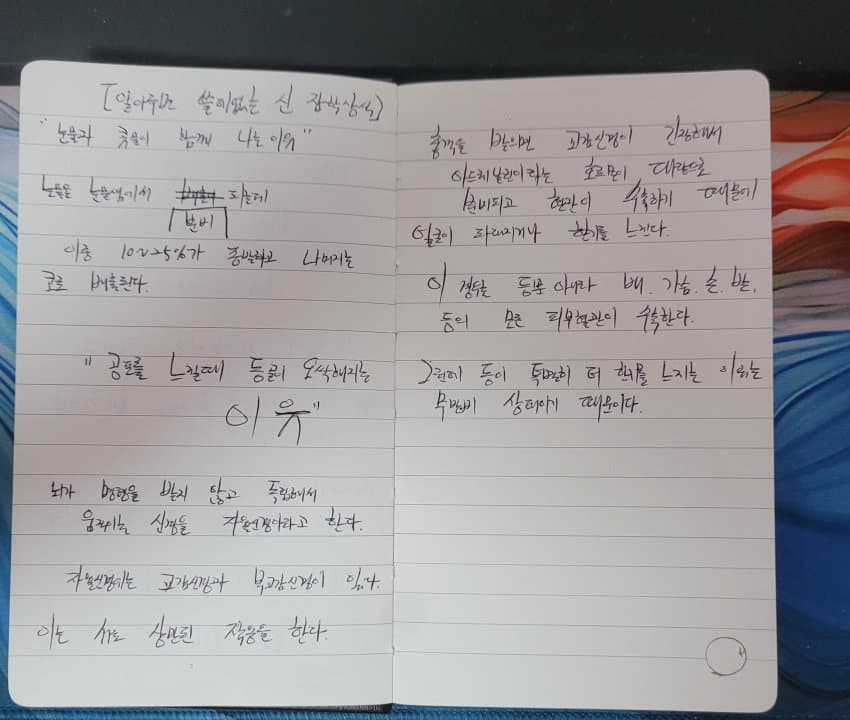 [알아두면 쓸데없는 신 잡학상식]
"눈물과 콧물이 함께 나는 이유"
눈물은 눈물샘에서 되는데
분비
이중 10~25%가 증발하고 나머지는
코로 배출된다.
"공포를 느낄때 등골이 오싹해지는
이유"
뇌가 명령을 받지 않고 독립해서
움직이는 신경을 자율신경이라고 한다.
자율신경에는 교감신경과 부교감신경이 있다.
이는 서로 상반된 작용을 한다.
충격을 받으면 교감신경이 긴장해서
아드레날린이라는 호르몬이 대량으로
분비되고 혈관이 수축하기 때문에
얼굴이 파래지거나 한기를 느낀다.
이 경우는 등뿐 아니라 배. 가슴. 손. 발.
등의 모든 피부혈관이 수축한다.
그런데 등이 특별히 더 한기를 느끼는 이유는
무방비 상태이기 때문이다.